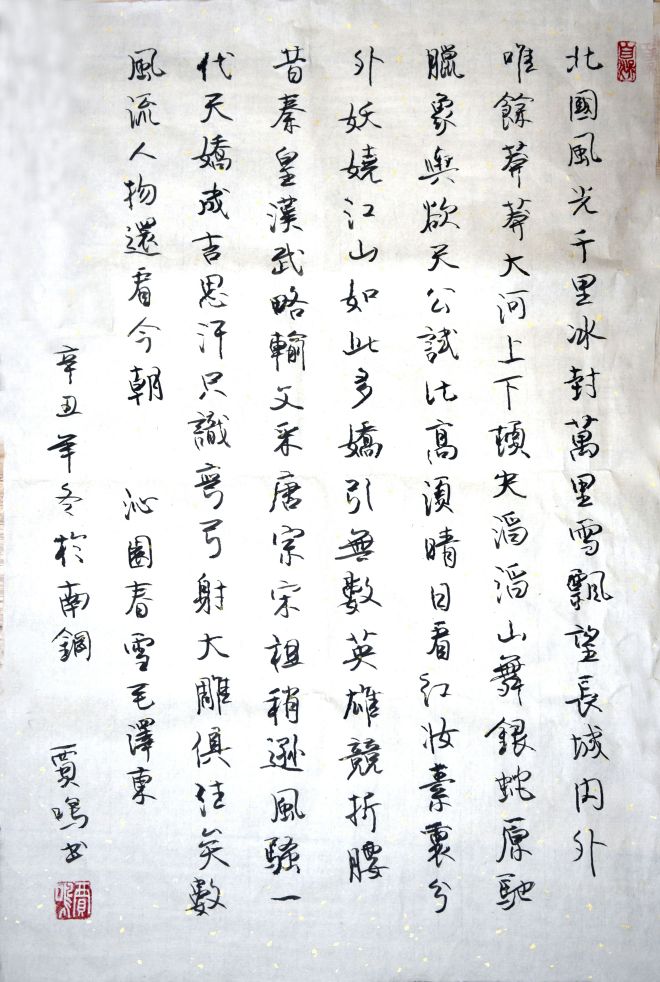 北國風光千里冰封萬里雪飄望長城內外
唯餘莽莽大河上下頓失滔滔山舞銀蛇原馳
臘象與欲天公試比高須晴日看紅妝素裹分
外妖嬈江山如此多嬌引無數英雄競折腰
昔秦皇漢武略輸文采唐宗宋祖稍遜風騷一
代天嬌成吉思汗只識彎弓射大雕俱往矣數
風流人物還看今朝 沁園春雪毛澤東
辛丑年冬於南鋼 賈鳴書